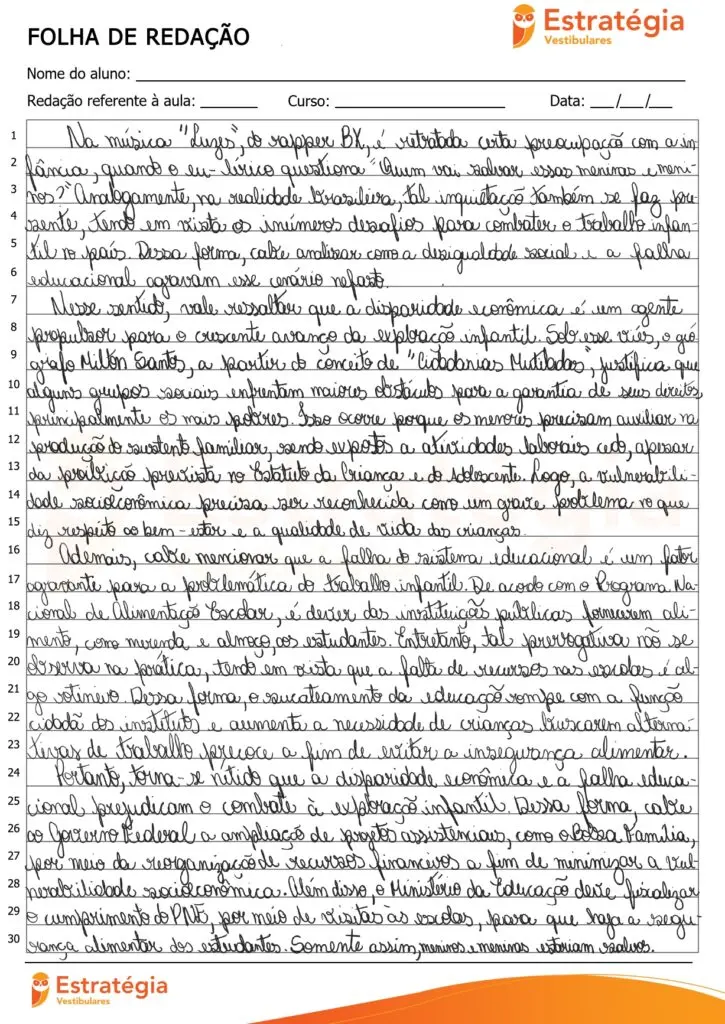 FOLHA DE REDAÇÃO
Estratégia
Vestibulares
Nome do aluno:
Redação referente à aula: Curso: Data: __/__/__
1 Na música "Luzes", do rapper BK, é retratada certa preocupação com a in
2 fância, quando o eu-lírico questiona "Quem vai salvar essas meninas e meni-
3 nos?" Analogamente, na realidade brasileira, tal inquietação também se faz pre
4 sente, tendo em vista os inúmeros desafios para combater o trabalho infan-
5 til no país. Dessa forma, cabe analisar como a desigualdade social e a falha
6 educacional agravam esse cenário nefasto.
7 Nesse sentido, vale ressaltar que a disparidade econômica é um agente
8 propulsor para o crescente avanço da exploração infantil. Sob esse viés, o geó
9 grafo Milton Santos, a partir do conceito de "Cidadanias Mutiladas", justifica que
10 alguns grupos sociais enfrentam maiores obstáculos para a garantia de seus direitos,
11 principalmente os mais pobres. Isso ocorre porque os menores precisam auxiliar na
12 produção do sustento familiar, sendo expostos a atividades laborais cedo, apesar
13 da proibição prevista no Estatuto da Criança e do Adolescente. Logo, a vulnerabili-
14 dade socioeconômica precisa ser reconhecida como um grave problema no que
15 diz respeito ao bem-estar e a qualidade de vida das crianças.
16 Ademais, cabe mencionar que a falha do sistema educacional é um fator
17 agravante para a problemática do trabalho infantil. De acodo com o Programa Na-
18 cional de Alimentação Escolar, é dever das instituições públicas fornecerem ali-
19 mento, como merenda e almoço, aos estudantes. Entretanto, tal prerrogativa não se
20 observa na prática, tendo em vista que a falta de recursos nas escolas é al-
21 go rotineiro. Dessa forma, o sucateamento da educação rompe com a função
22 cidadã dos institutos e aumenta a necessidade de crianças buscarem alterna-
23 tivas de trabalho precoce a fim de evitar a insegurança alimentar.
24 Portanto, torna-se nítido que a disparidade econômica e a falha educa-
25 cional prejudicam o combate à exploração infantil. Dessa forma, cabe
26 ao Governo Federal a ampliação de projetos assistenciais, como o Bolsa Família,
27 por meio da reorganização de recursos financeiros a fim de minimizar a vul-
28 nerabilidade socioeconômica. Além disso, o Ministério da Educação deve fiscalizar
29 o cumprimento do PNE, por meio de visitas às escolas, para que haja a segu-
30 rança alimentar dos estudantes. Somente assim, meninos e meninas estariam salvos.
Estratégia
Vestibulares